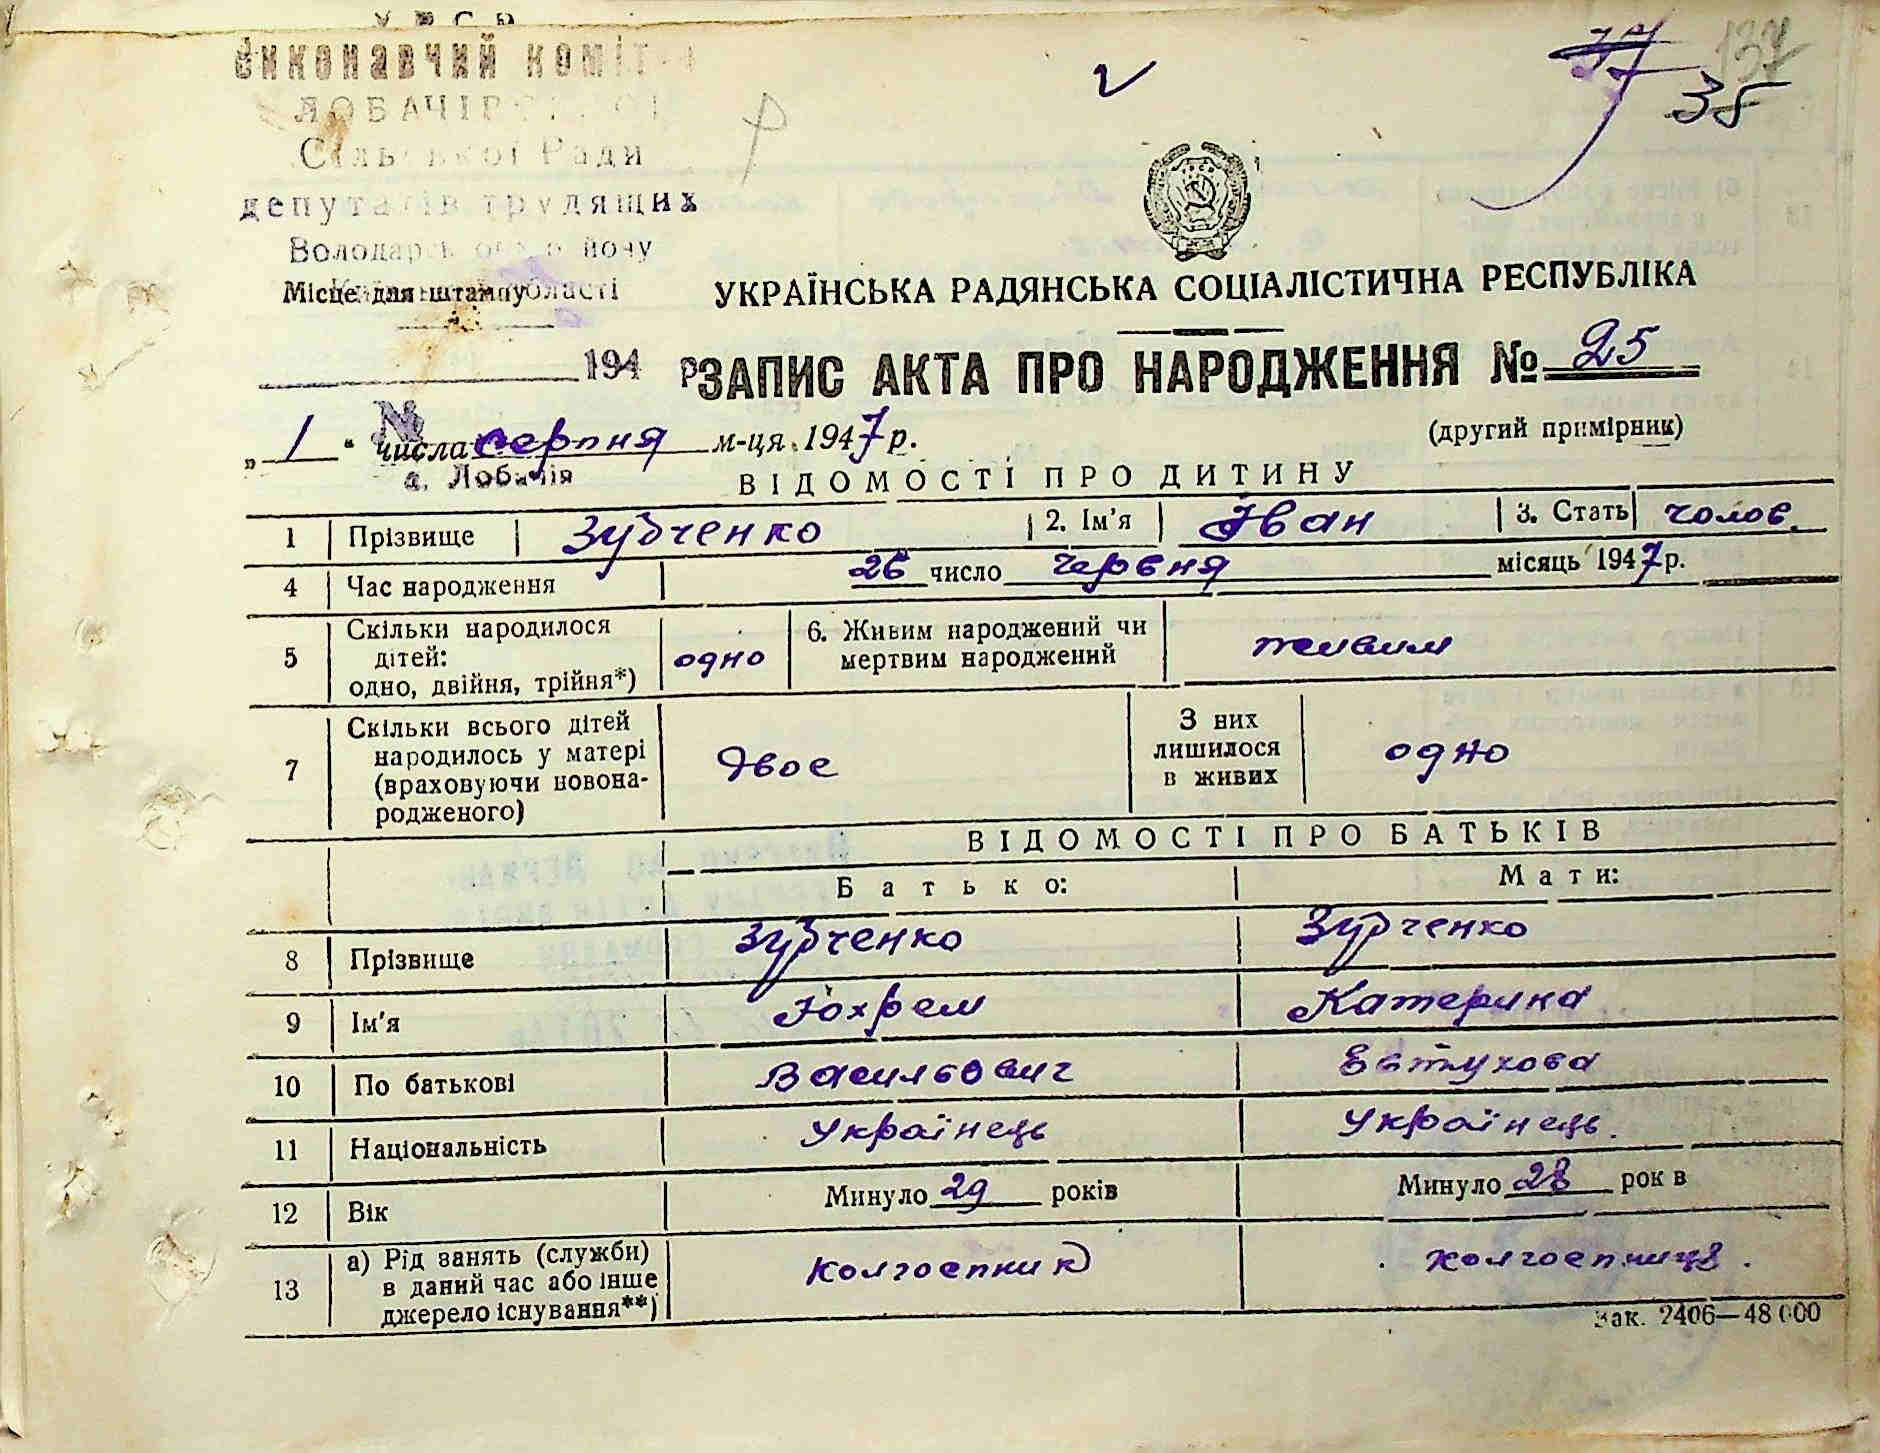 У Р С Р
Виконавчий коміт
ЛОБАЧІВСЬКОЇ
Сільської Ради
депутатів трудящих
Володарського району
Київської області
Місце для штампу
194 р
№
с. Лобачів
137
35
УКРАЇНСЬКА РАДЯНСЬКА СОЦІАЛІСТИЧНА РЕСПУБЛІКА
ЗАПИС АКТА ПРО НАРОДЖЕННЯ № 25
„ 1 " числа серпня м-ця 1947 р.
(другий примірник)
ВІДОМОСТІ ПРО ДИТИНУ
1 Прізвище Зубченко 2. Ім'я Іван 3. Стать чолов.
4 Час народження 26 число червня місяць 1947 р.
5 Скільки народилося дітей: одно, двійня, трійня*) одно 6. Живим народжений чи мертвим народжений живим
7 Скільки всього дітей народилось у матері (враховуючи новона-родженого) двоє З них лишилося в живих одно
ВІДОМОСТІ ПРО БАТЬКІВ
Батько: Мати:
8 Прізвище Зубченко Зубченко
9 Ім'я Юхрем Катерина
10 По батькові Васильович Євтухова
11 Національність Українець Українець.
12 Вік Минуло 29 років Минуло 28 рок в
13 а) Рід занять (служби) в даний час або інше джерело існування**) Колгоспник колгоспниця.
Зак. 2406—48 000